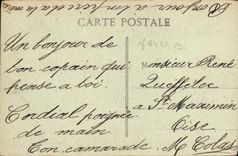 Bonjour à ton père de la me
CARTE POSTALE
Un bonjour de
bon copain qui
pense a toi.
Cordial poignée
de main
Ton camarade. M Colas
Monsieur René
Queffelec
a St Maximin
Oise